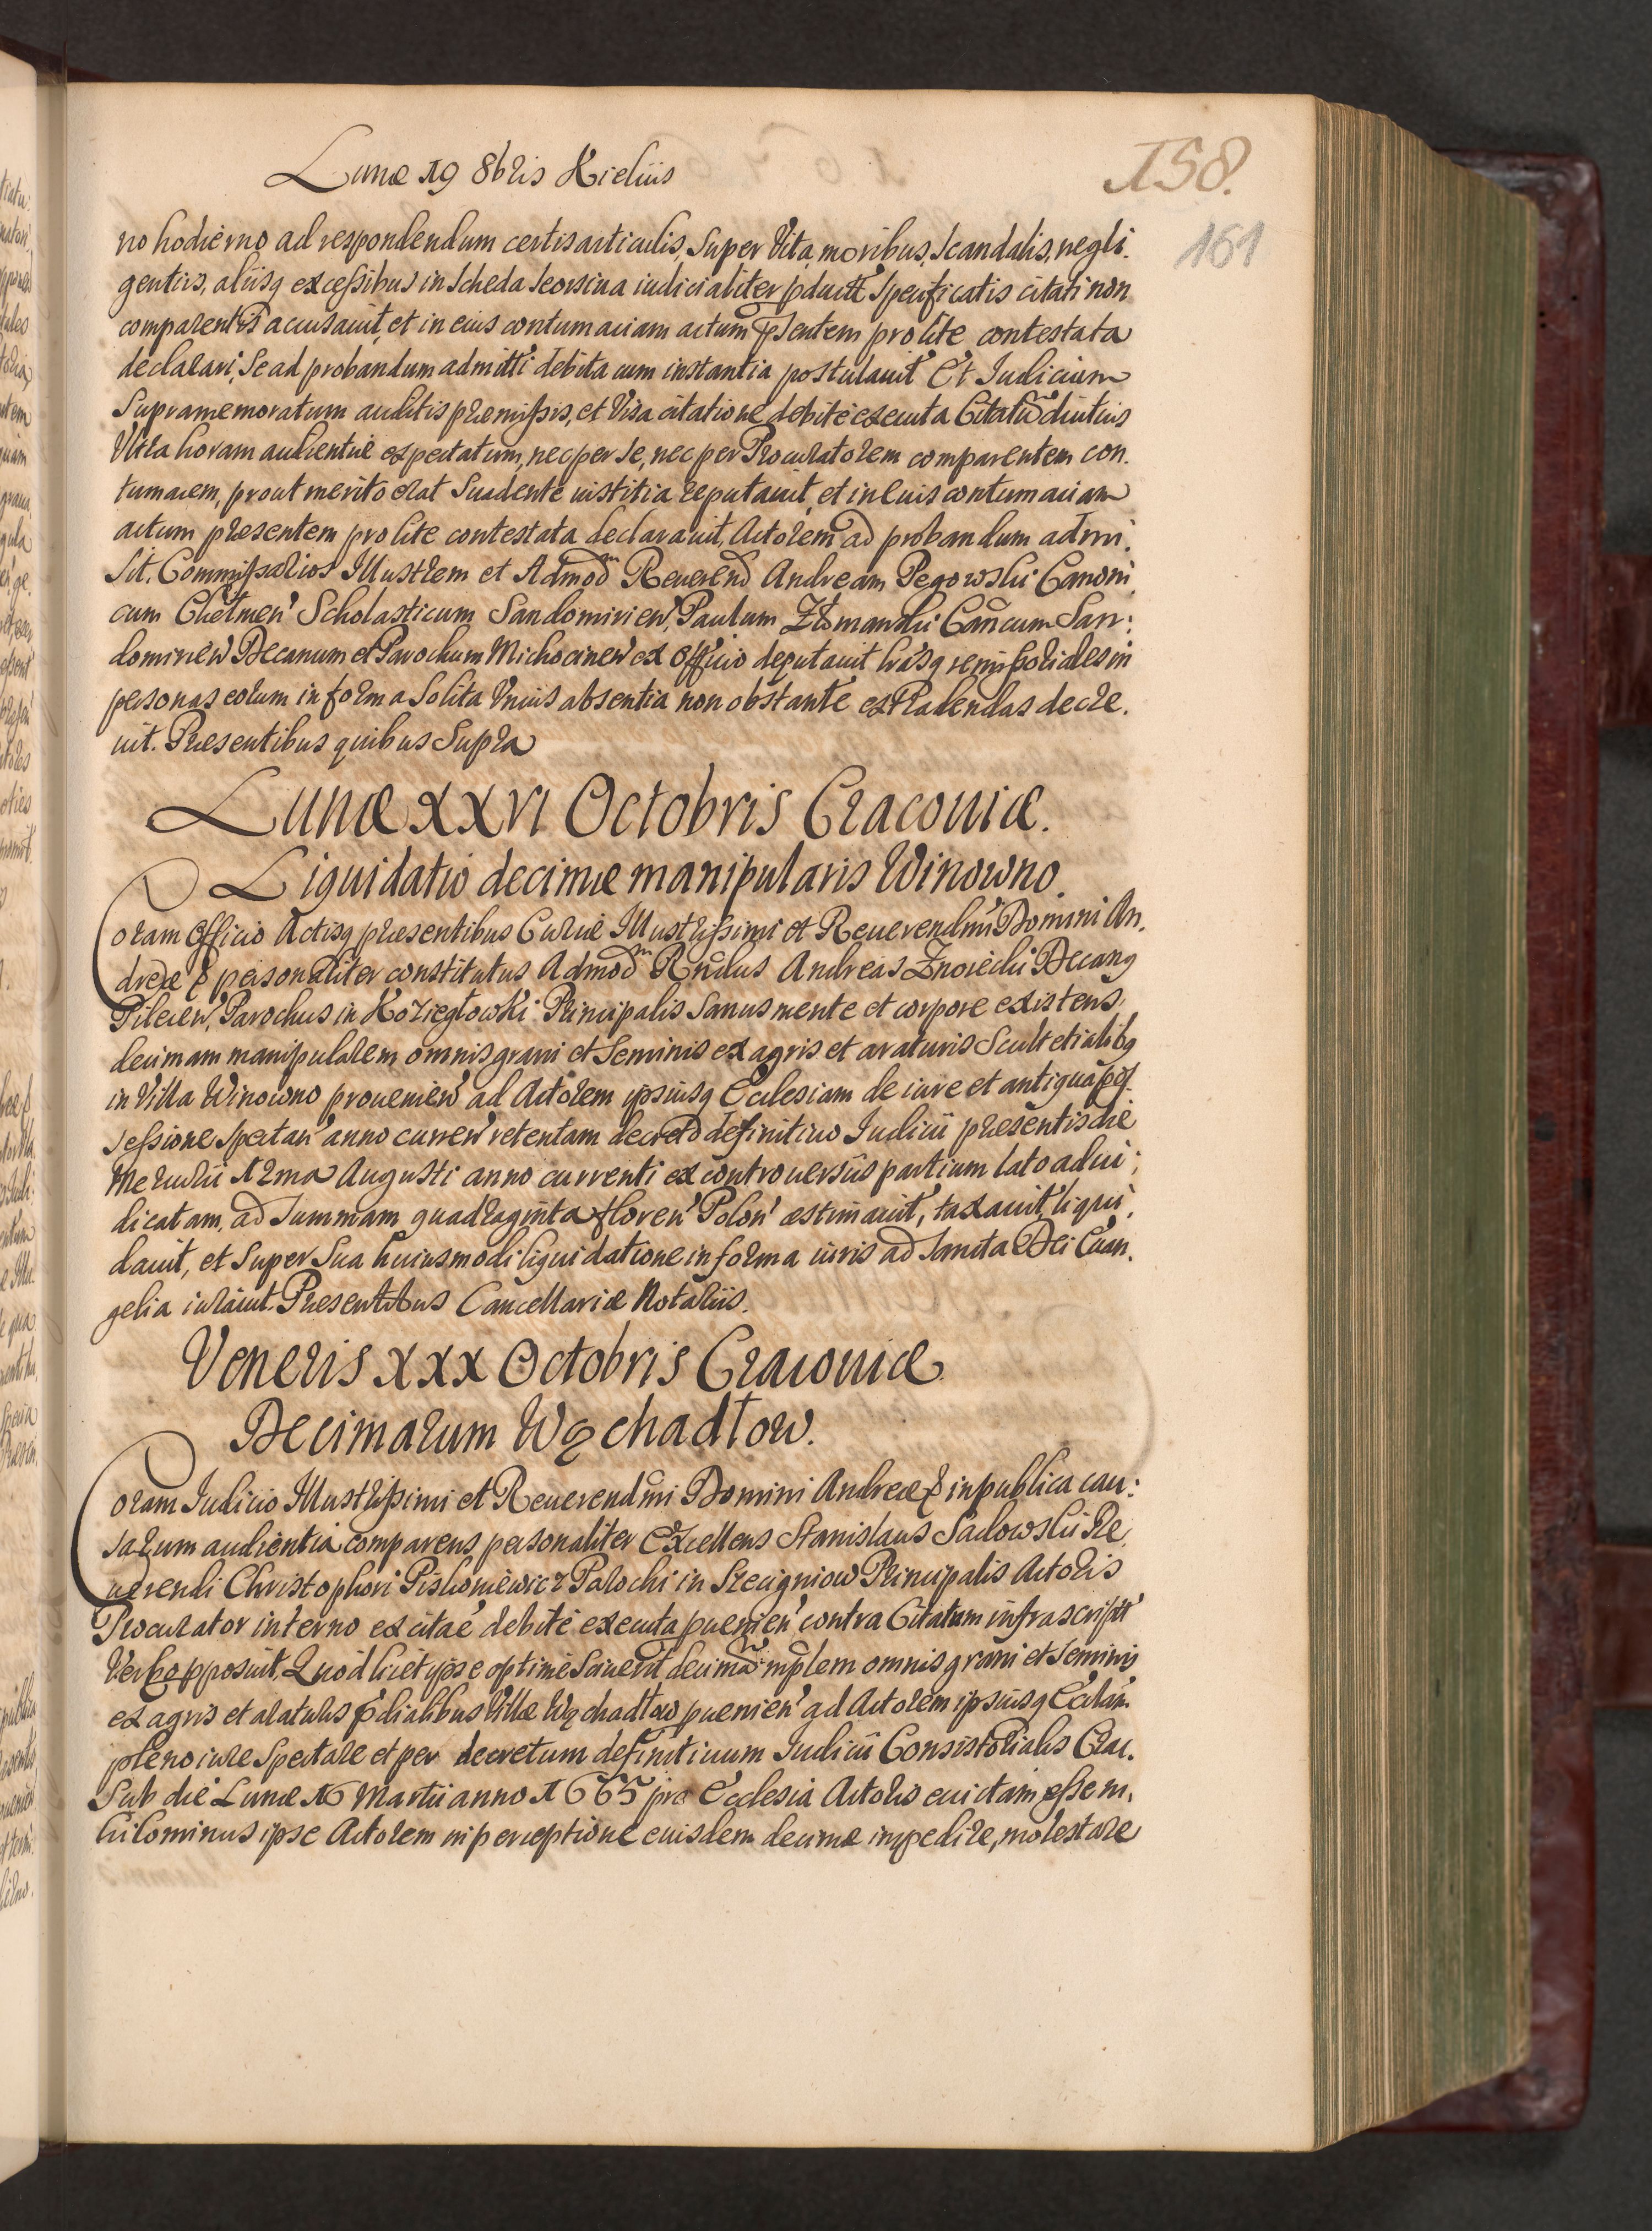 Lunæ 19 8bris Kielciis
158.
161
no hodierno ad respondendum certis articulis, super vita, moribus, scandalis, negli.
gentiis, aliisq excessibus in scheda seorsiva iudicialiter pduct specificatis citati non
comparentis accusavit, et in eius contumaciam actum pñsentem pro lite contestata
declarari, se ad probandum admitti debita cum instantia postulauit Et Iudicium
supramemoratum auditis præmissis, et visa citatione debite executa Citatũ diutius
Vltra horam audientiæ expectatum, nec per se, nec per Procuratorem comparentem con.
tumacem, prout merito erat suadente iustitia reputauit, et in eius contumaciam
actum præsentem pro lite contestata declarauit, Actorem ad probandum admi.
sit. Commissarios Illustrem et Admodm Reuerend Andream Pegowski Canoni,
cum Chełmen' Scholasticum Sandomirien', Paulum Złomanski Cañcum San:
domirien' Decanum et Parochum Michocinen' ex officio deputauit lrãsq remissoriales in
personas eorum in forma solita vnius absentia non obstante extradendas decre.
uit. Præsentibus quibus supra
Lunæ XXVI Octobris Cracouiæ.
Liquidatio decimæ manipularis Winowno.
Coram Officio Actisq præsentibus Curiæ Illustrissimi et Reuerendmi Domini An.
dreæ & personaliter constitutus Admodm Rndus Andreas Znoiecki Decang
Pilecien', Parochus in Koziegłowki Principalis sanus mente et corpore existens,
decimam manipularem omnis grani et seminis ex agris et araturis scultetialibg
in Villa Winowno prouenien' ad Actorem ipsiusq Ecclesiam de iure et antiqua pos.
sessione spectan' anno curren' retentam decreto definitiuo Iudicii præsentis die
Mercurii 12ma Augusti anno currenti ex controuersiis partium lato adiu;
dicatam, ad summam quadraginta floren' Polon' æstimauit, taxauit, liqui,
dauit, et super sua huiusmodi liquidatione in forma iuris ad sancta Dei Euan.
gelia iurauit. Præsentibus Cancellariæ Notariis.
Veneris XXX Octobris Cracouiæ
Decimarum Węchadłow.
Coram Iudicio Illustrissimi et Reuerendmi Domini Andreæ & in publica cau:
sarum audientia comparens personaliter Excellens Stanislaus Sadowski Re,
uerendi Christophori Piskoniewicz Parochi in Stecigniow Principalis Actoris
Procurator in terno ex citãe debite executa puenien' contra Citatum infrascriptt
Verbo pposuit, Quod licet ipse optime sciuerit decimã mplem omnis grani et seminis
ex agris et araturis pdialibus Villæ Węchadłow puenien' ad Actorem ipsiusq Eccliam
pleno iure spectare et per decretum definitiuum Iudicii Consistorialis Crac.
sub die Lunæ 16 Martii anno 1665 pro Ecclesia Actoris euictam esse ni,
hilominus ipse Actorem in perceptione eiusdem decimæ impedire, molestare